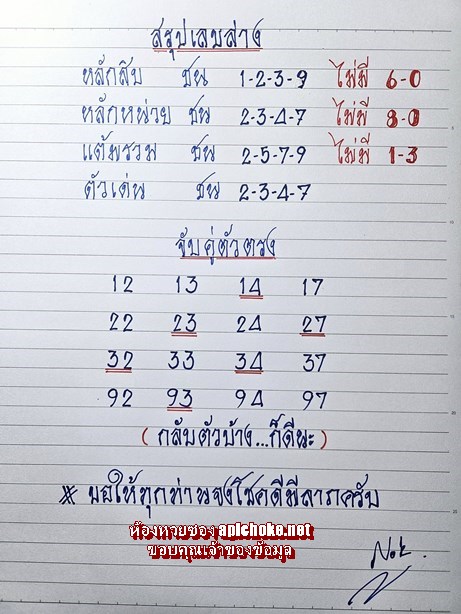 สรุปเลขล่าง
หลักสิบ ชน 1-2-3-9 ไม่มี 6-0
หลักหน่วย ชน 2-3-4-7 ไม่มี 8-0
แต้มรวม ชน 2-5-7-9 ไม่มี 1-3
ตัวเด่น ชน 2-3-4-7
จับคู่ตัวตรง
12 13 14 17
22 23 24 27
32 33 34 37
92 93 94 97
(กลับตัวบ้าง...ก็ดีนะ)
※ ขอให้ทุกท่านจงโชคดีมีลาภครับ
ห้องหวยซอง apichoke.net
ขอบคุณเจ้าของข้อมูล
Nok.